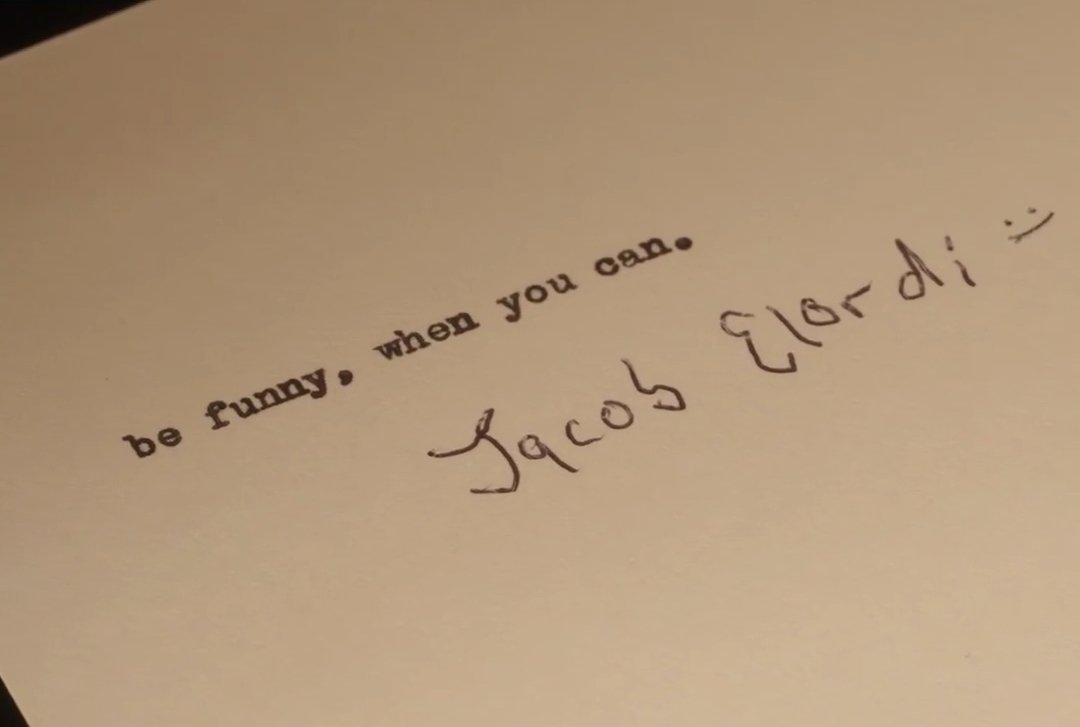 be funny, when you can.
Jacob Elordi :)